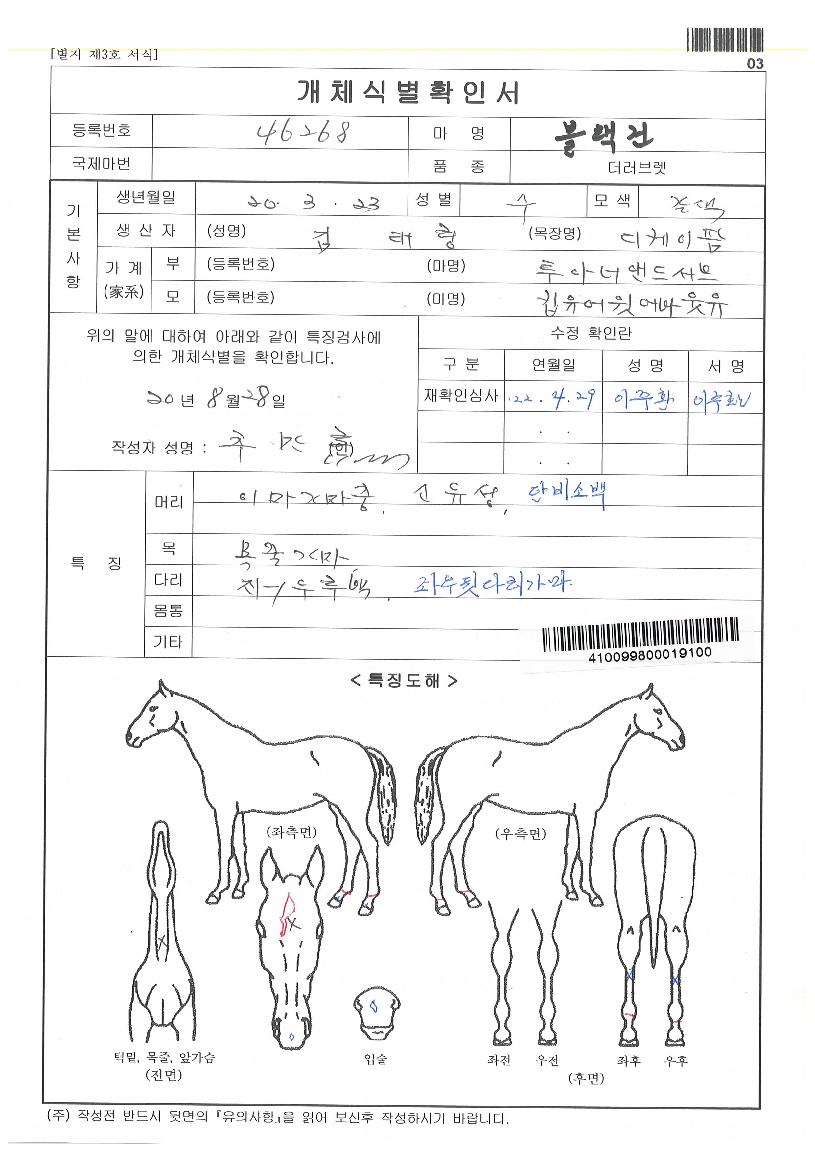 [별지 제3호 서식]
03
개체식별확인서
등록번호 46268 마 명 블랙건
국제마번 품 종 더러브렛
기본사항
생년월일 20. 3. 23 성별 수 모색 흑색
생 산 자 (성명) 김태형 (목장명) 디케이팜
가계(家系) 부 (등록번호) (마명) 투아너앤드서브
모 (등록번호) (미명)
위의 말에 대하여 아래와 같이 특징검사에
의한 개체식별을 확인합니다.
20년 8월28일
작성자 성명 : (인)
수정 확인란
구 분 연월일 성 명 서 명
재확인심사 22. 4. 29 이주환 이주환
특 징
머리 이마가마중, 신유성, 단비소백
목
다리 좌우뒷다리가마
몸통
기타
410099800019100
< 특징도해 >
(좌측면) (우측면)
턱밑, 목줄, 앞가슴 입술 좌전 우전 좌후 우후
(전면) (후면)
(주) 작성전 반드시 뒷면의 『유의사항』을 읽어 보신후 작성하시기 바랍니다.